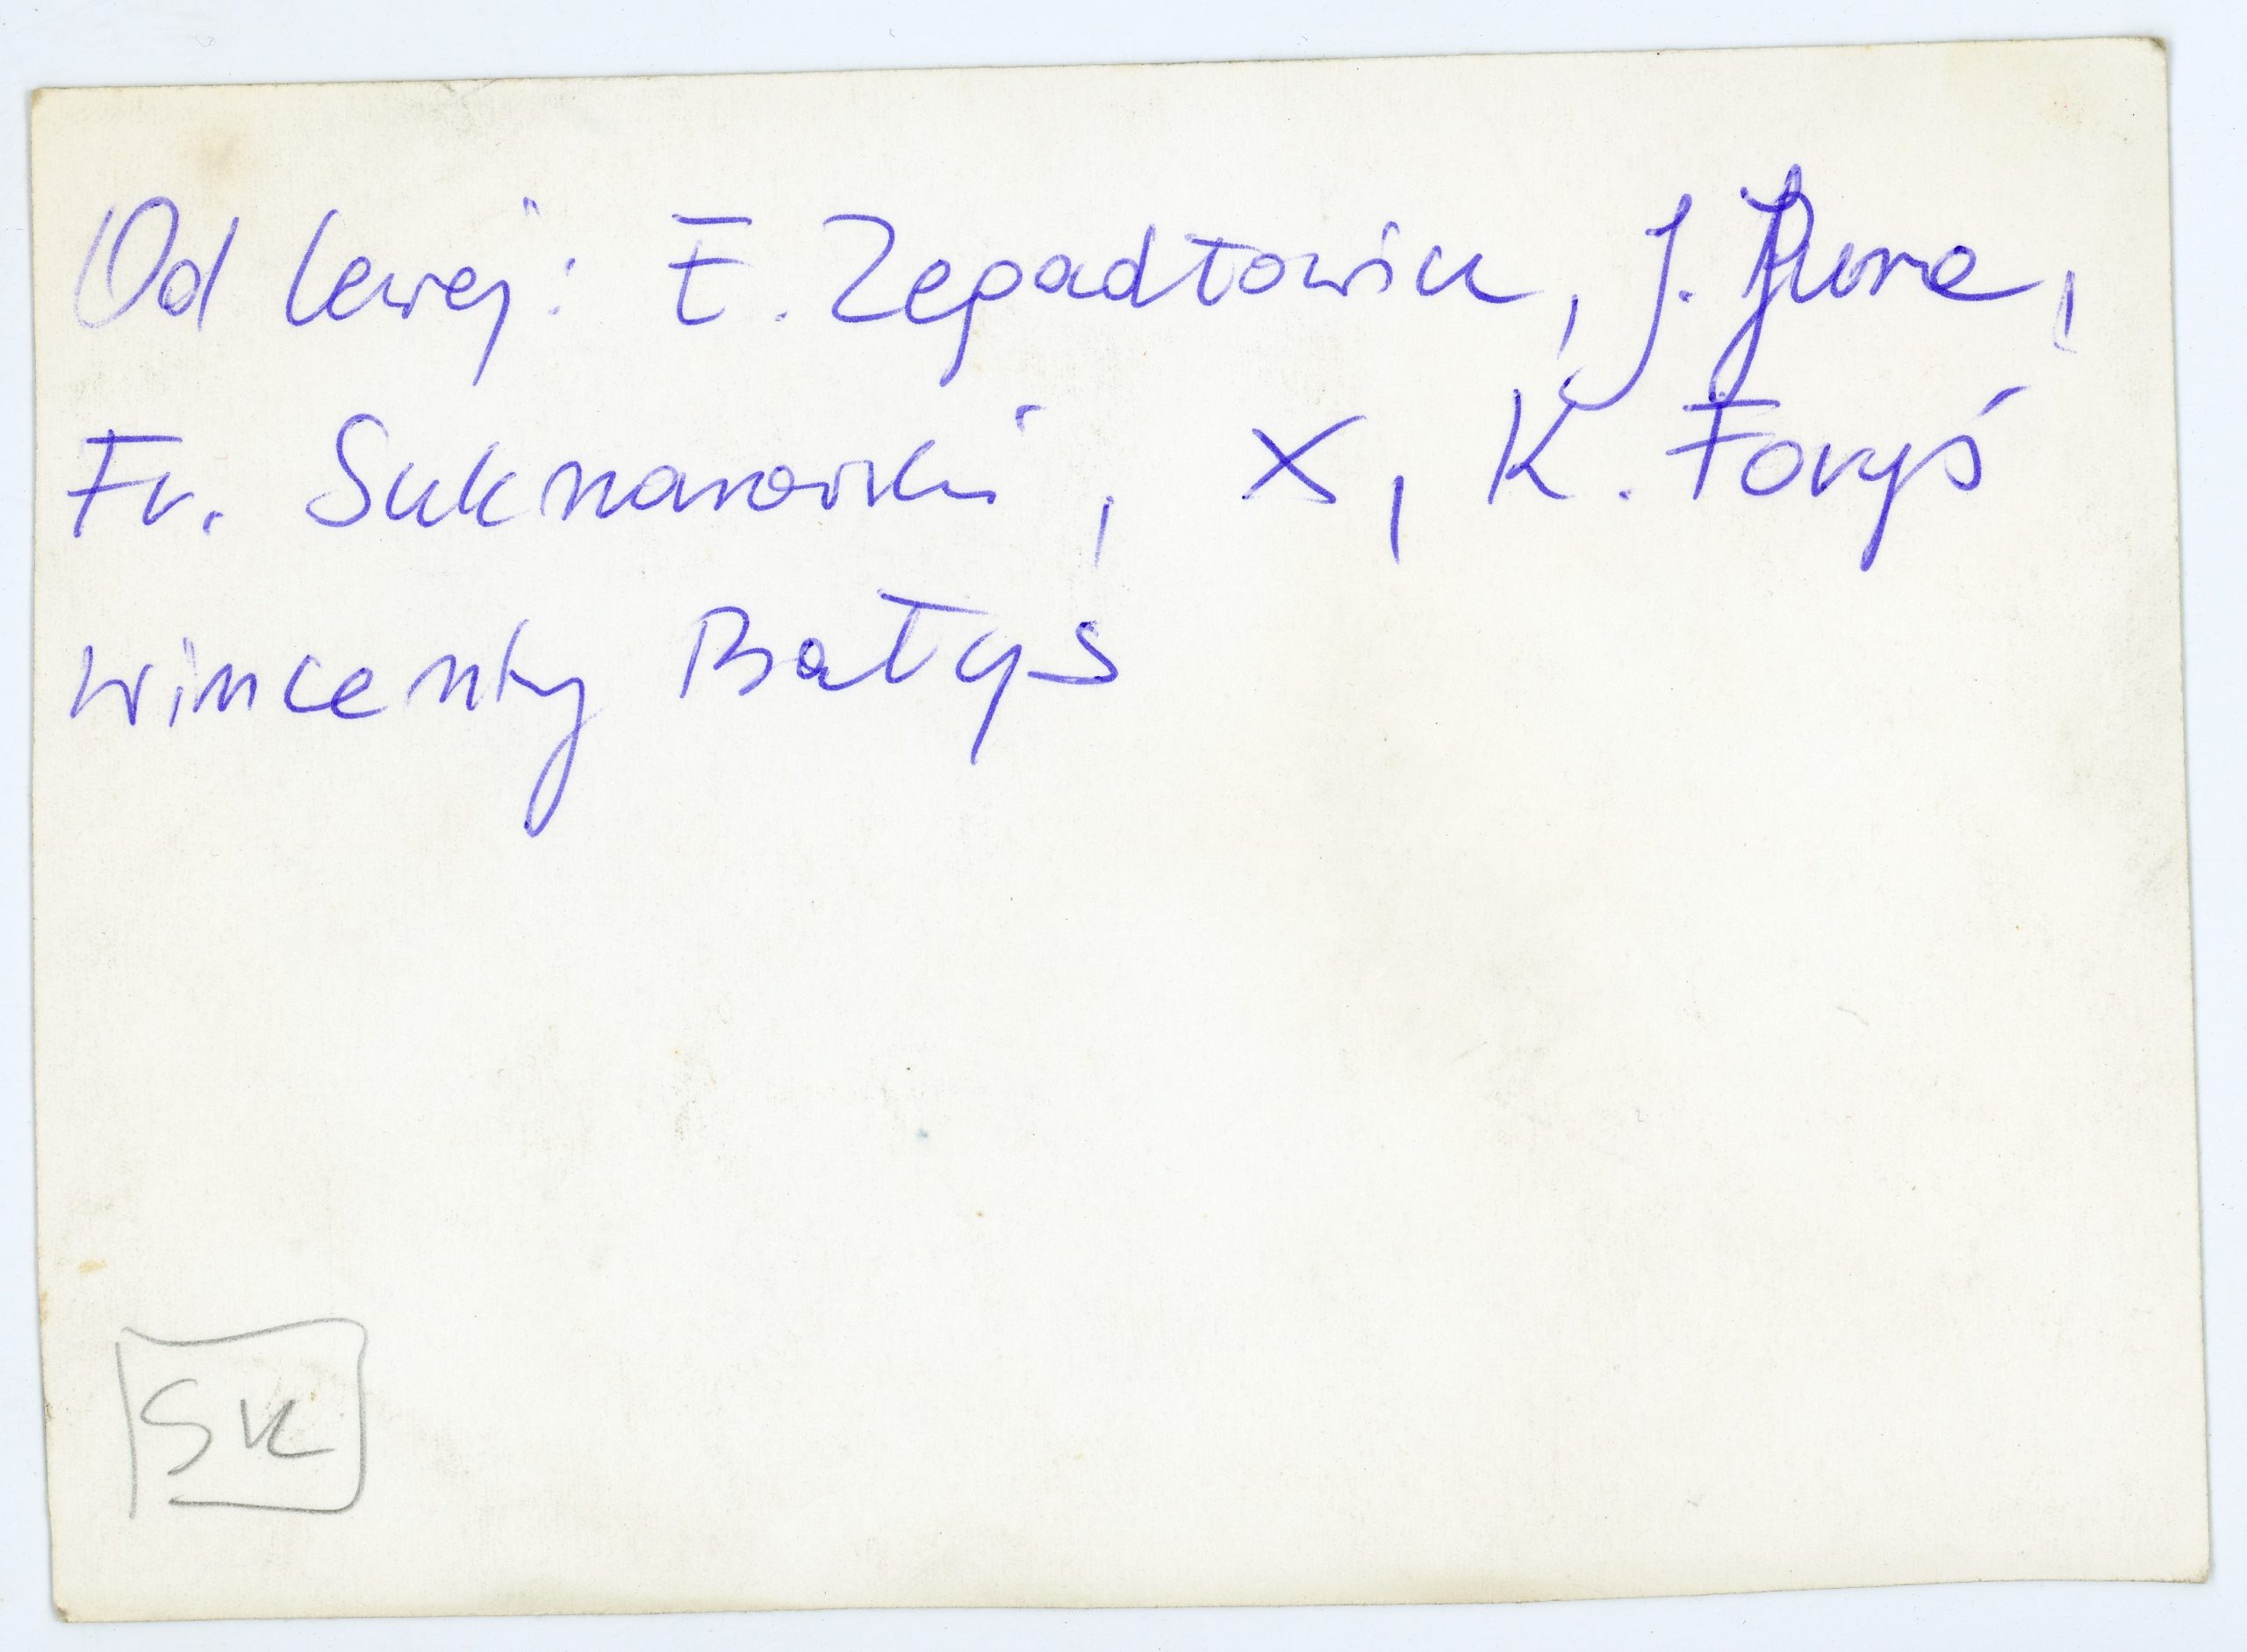 Od lewej: E. Zegadłowicz, J. Jura,
Fr. Suknarowski, X, K. Foryś
Wincenty Bałys
SK